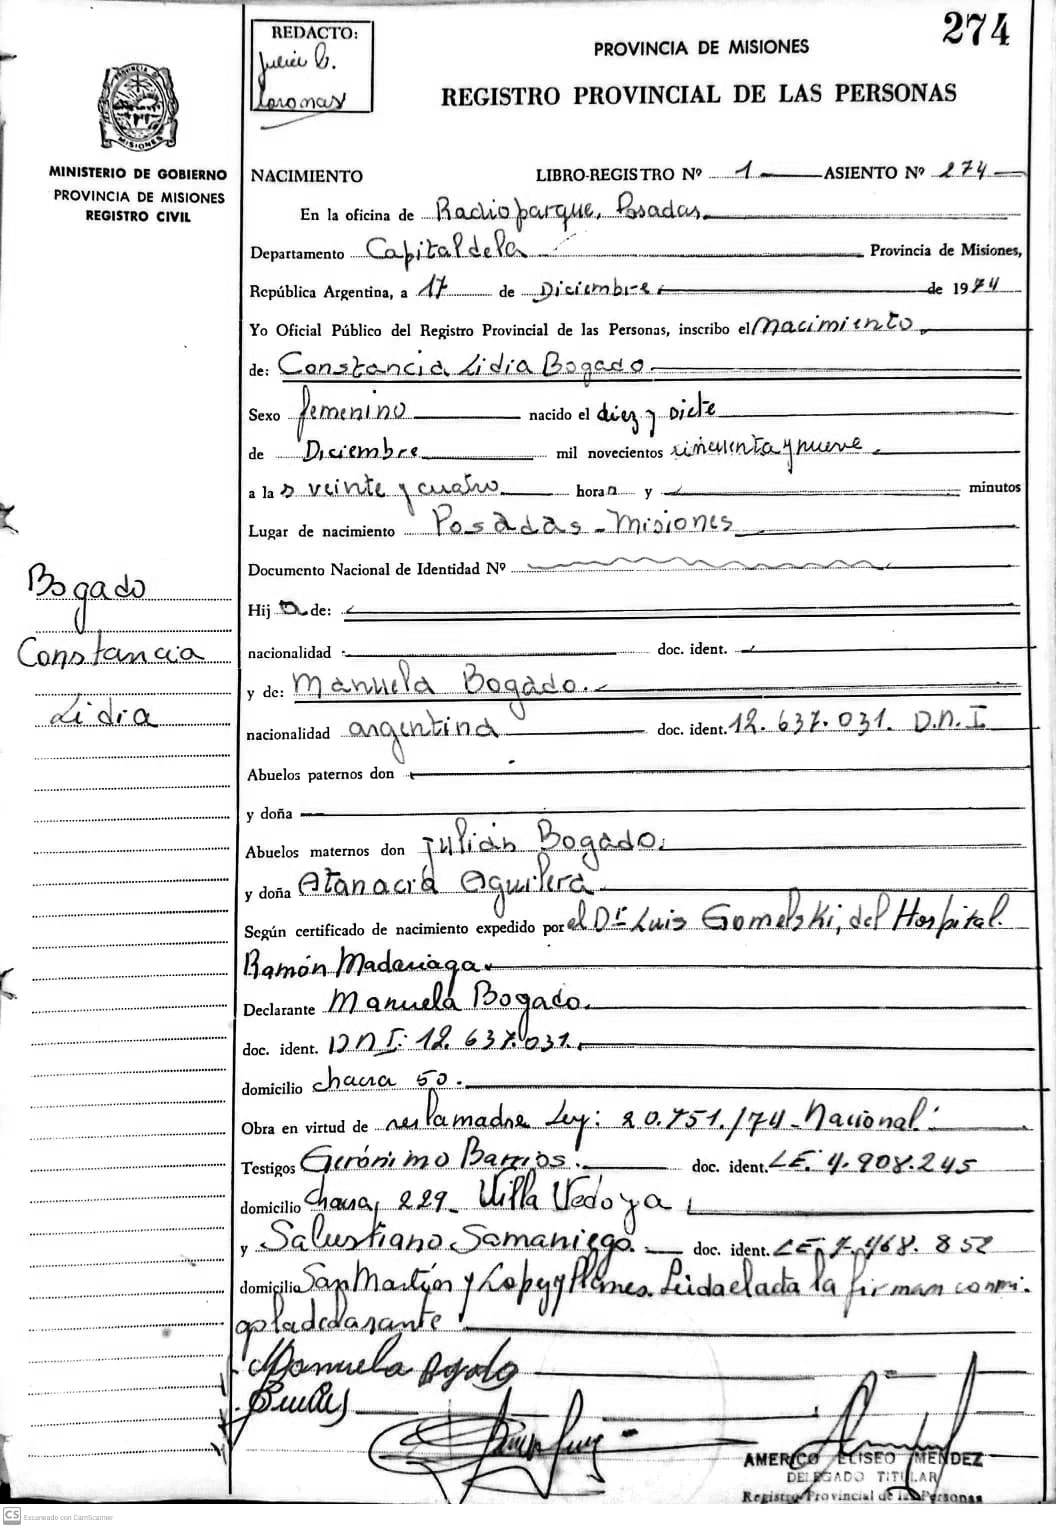 274
REDACTO:
PROVINCIA DE MISIONES
REGISTRO PROVINCIAL DE LAS PERSONAS
PROVINCIA DE
MISIONES
MINISTERIO DE GOBIERNO
PROVINCIA DE MISIONES
REGISTRO CIVIL
NACIMIENTO LIBRO-REGISTRO Nº 1 ASIENTO Nº 274
En la oficina de Radioparque, Posadas
Departamento Capital de la Provincia de Misiones,
República Argentina, a 17 de Diciembre de 1974
Yo Oficial Público del Registro Provincial de las Personas, inscribo el Nacimiento
de: Constancia Lidia Bogado
Sexo femenino nacido el diez y siete
de Diciembre mil novecientos cincuenta y nueve
a la s veinte y cuatro horas y minutos
Lugar de nacimiento Posadas - Misiones
Documento Nacional de Identidad Nº
Hij a de:
nacionalidad doc. ident.
y de: Manuela Bogado.
nacionalidad argentina doc. ident. 12.637.031. D.N.I
Abuelos paternos don
y doña
Abuelos maternos don Julián Bogado
y doña Atanacia Aguilera
Según certificado de nacimiento expedido por el Dr Luis Gomelski, del Hospital
Ramón Madariaga
Declarante Manuela Bogado.
doc. ident. DNI: 12.637.031.
domicilio chacra 50.
Obra en virtud de ser la madre Ley: 20.751./74 - Nacional
Testigos Gerónimo Barrios. doc. ident. L.E. 4.908.245
domicilio chacra 229 - Villa Vedoya
y Salustiano Samaniego. doc. ident. L.E. 7.468.852
domicilio San Martín y Lopez y Planes. Leida el acta la firman conmi-
go la declarante
Manuela Bogado
AMERICO ELISEO MENDEZ
DELEGADO TITULAR
Registro Provincial de las Personas
Bogado
Constancia
Lidia
CS Escaneado con CamScanner